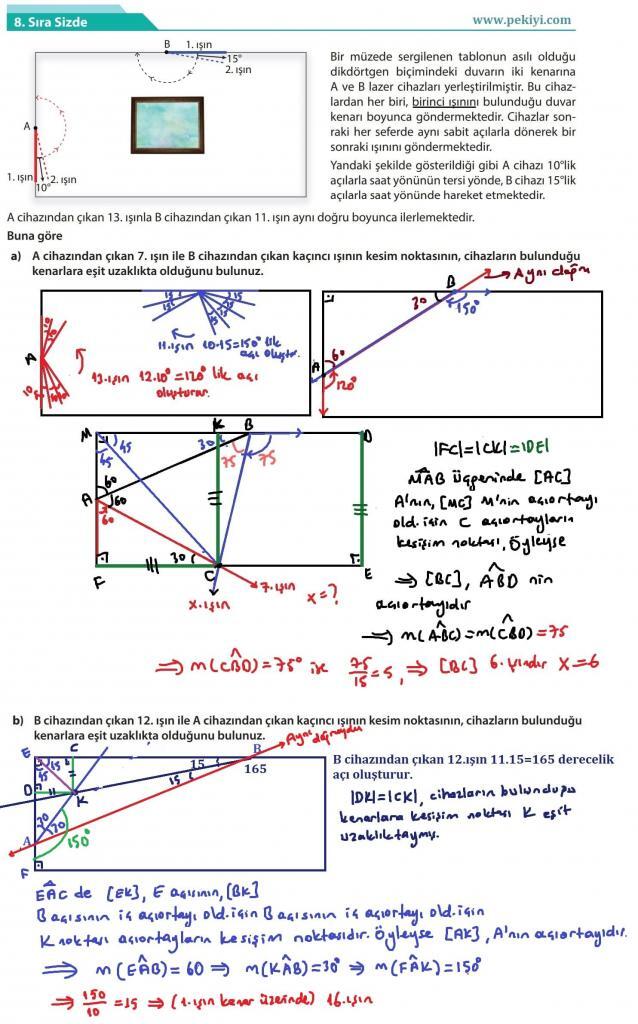 8. Sıra Sizde
www.pekiyi.com
B
1. ışın
15°
2. ışın
A
1. ışın
2. ışın
10°
Bir müzede sergilenen tablonun asılı olduğu
dikdörtgen biçimindeki duvarın iki kenarına
A ve B lazer cihazları yerleştirilmiştir. Bu cihaz-
lardan her biri, birinci ışınını bulunduğu duvar
kenarı boyunca göndermektedir. Cihazlar son-
raki her seferde aynı sabit açılarla dönerek bir
sonraki ışınını göndermektedir.
Yandaki şekilde gösterildiği gibi A cihazı 10°lik
açılarla saat yönünün tersi yönde, B cihazı 15°lik
açılarla saat yönünde hareket etmektedir.
A cihazından çıkan 13. ışınla B cihazından çıkan 11. ışın aynı doğru boyunca ilerlemektedir.
Buna göre
a) A cihazından çıkan 7. ışın ile B cihazından çıkan kaçıncı ışının kesim noktasının, cihazların bulunduğu
kenarlara eşit uzaklıkta olduğunu bulunuz.
15 15 15 15
11.ışın 10.15=150° lik
açı oluştr.
A
10 10
13.ışın 12.10°=120° lik açı
oluşturur.
B
Aynı doğru
30
150°
A
60
120°
M
K
B
D
45
45
30
75
75
60
A
60
60
30
F
C
E
7.ışın
x.ışın
x=?
|FC|=|CK|=|DE|
MAB üçgeninde [AC]
A'nın, [MC] M'nin açıortayı
old. için C açıortayların
kesişim noktası, Öyleyse
⇒ [BC], ABD nin
açıortayıdır
⇒ m(ABC)=m(CBD)=75
⇒ m(CBD)=75° ise 75/15=5, ⇒ [BC] 6. ışındır x=6
b) B cihazından çıkan 12. ışın ile A cihazından çıkan kaçıncı ışının kesim noktasının, cihazların bulunduğu
kenarlara eşit uzaklıkta olduğunu bulunuz.
E
C
B
Aynı doğruydu
45
45
15
15
165
D
K
30
30
A
150°
F
B cihazından çıkan 12.ışın 11.15=165 derecelik
açı oluşturur.
|DK|=|CK|, cihazların bulunduğu
kenarlara kesişim noktası K eşit
uzaklıktaymış.
EAC de [EK], E açısının, [BK]
B açısının iç açıortayı old. için B açısının iç açıortayı old. için
K noktası açıortayların kesişim noktasıdır. Öyleyse [AK], A'nın açıortayıdır.
⇒ m(EAB)=60 ⇒ m(KAB)=30° ⇒ m(FAK)=150°
⇒ 150/10 =15 ⇒ (1.ışın kenar üzerinde) 16.ışın